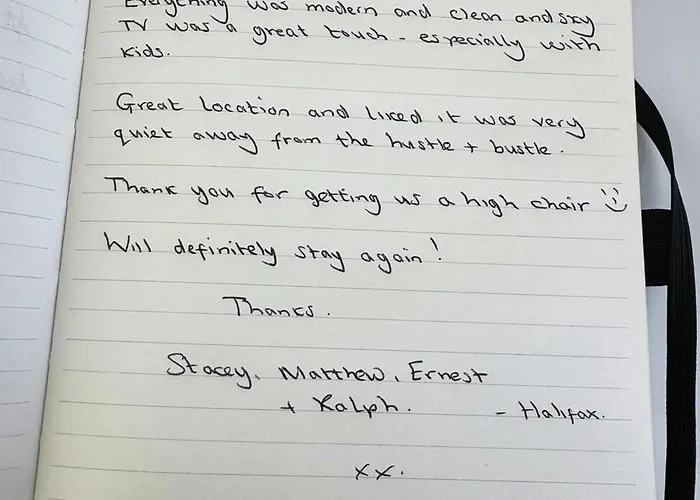 Everything was modern and clean and sky
TV was a great touch - especially with
kids.
Great location and liked it was very
quiet away from the hustle + bustle.
Thank you for getting us a high chair
Will definitely stay again!
Thanks.
Stacey, Matthew, Ernest
+ Ralph. - Halifax.
xx.